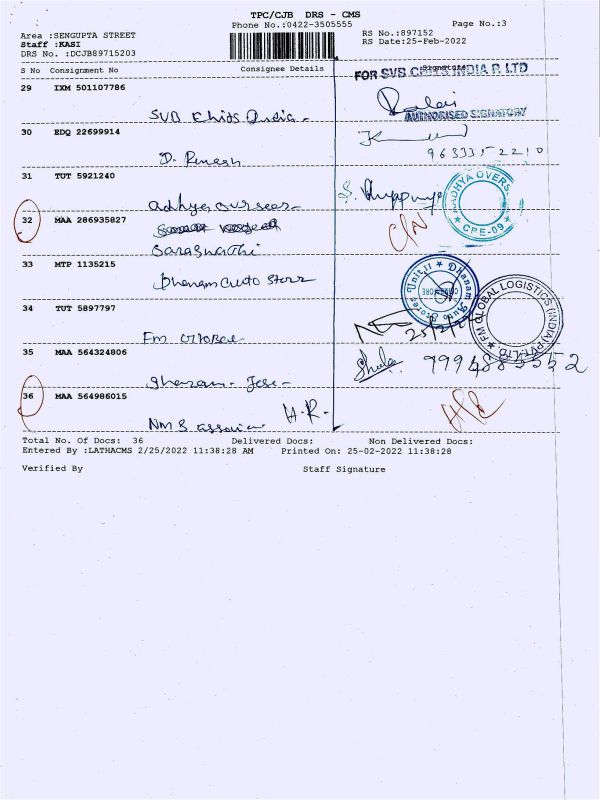 TPC/CJB DRS - CMS
Phone No.:0422-3505555
Page No.:3
Area :SENGUPTA STREET
RS No.:897152
Staff :KASI
RS Date:25-Feb-2022
DRS No. :DCJB89715203
S No Consignment No Consignee Details Signature
FOR SVB CHITS INDIA P. LTD
29 IXM 501107786
SVB Chits India -
AUTHORISED SIGNATORY
30 EDQ 22699914
D. Rmesh
9633352210
31 TUT 5921240
Adhya overseas -
AADHYA OVERS
CPE-09
32 MAA 286935827
Saraswathi
33 MTP 1135215
Dhanam Auto Storz
Dhanam Auto Unit,II
COIMBATORE
34 TUT 5897797
25/2/22
FM Global
FM GLOBAL LOGISTICS (INDIA) PVT. LTD
35 MAA 564324806
36 MAA 564986015
H.R.
NMS
Total No. Of Docs: 36 Delivered Docs: Non Delivered Docs:
Entered By :LATHACMS 2/25/2022 11:38:28 AM Printed On: 25-02-2022 11:38:28
Verified By Staff Signature